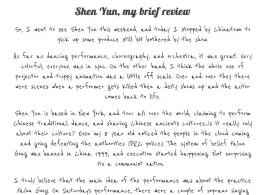 Shen Yun, my brief review
So, I went to see Shen Yun this weekend, and today I stopped by Chinatown to
pick up some produce still bit bothered by the show.
As far as dancing performance, choreography, and orchestra, it was great. Very
colorful, everyone was in sync. On the other hand, I think the whole use of
projector and trippy animation was a little off scale. Over and over they there
were scenes when a performer gets killed then a deity shows up and the action
comes back to life.
Shen Yun is based in New York, and tour all over the world, claiming to perform
Chinese traditional dance, and sharing Chinese ancients cultures...is it really all
about their culture? Even my 8 year old noticed the people in the cloud coming
and going defeating the authorities (PRC police). The system of belief Falun
Gong was banned in China 1999, and execution started happening. Not surprising
its a communist nation.
I truly believe that the main idea of the performance was about the practice
Falun Gong. On Saturday's performance, there were a couple of soprano singing